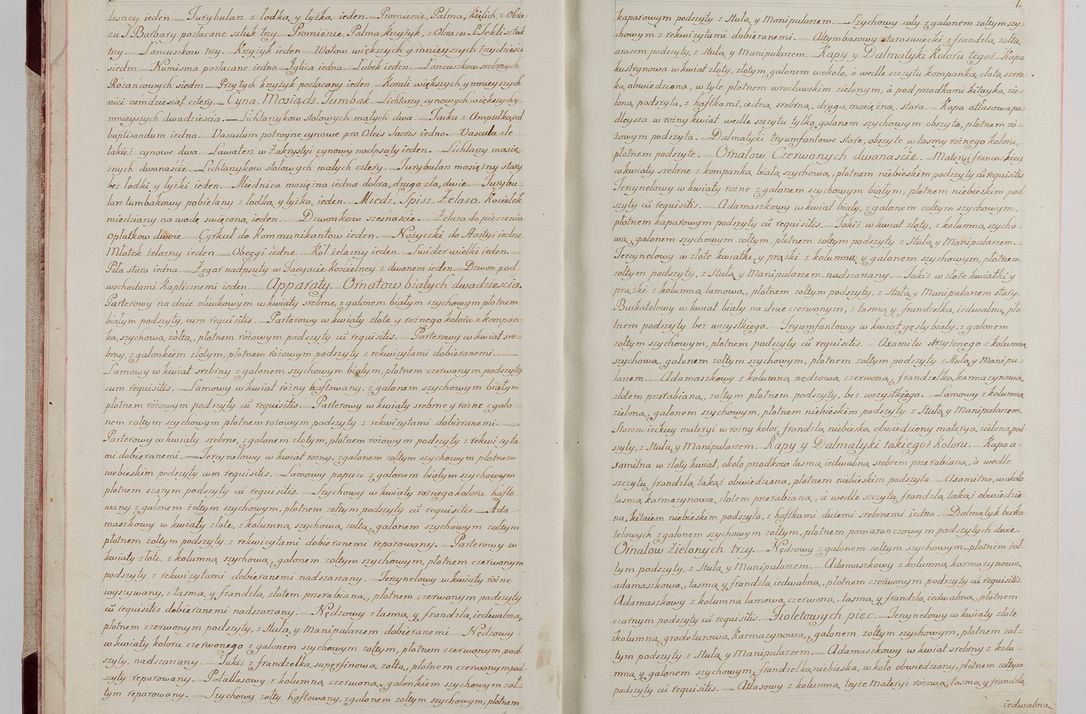 teńszy ieden. Turybularz z łodką y łyżką ieden. Promienie, Palma, Kielich z Obra-
zu S. Barbary pozłacane sztuk trzy. Promienie, Palma krzyżyk, z Obrazu S. Tekli sztuk
trzy. Łancuszkow trzy. Krzyżyk ieden. Wotow większych y mnieyszych trzydzieści
siedm. Numisma pozłacane iedno. Iglica iedna. Łubek ieden. Łancuszkow srebrnych
Rożancowych siedm. Przy tych krzyżyk pozłacany ieden. Korali większych y mnieyszych
nici osmdziesiąt cztery. Cyna, Mosiądz, Tumbak. Lichtarzy cynowych większych y
mnieyszych dwadzieścia. Lichtarzykow stołowych małych dwa. Tacka z Ampułką od
baptisandum iedna. Vasculum potroyne cynowe pro Oleis Sacris iedno. Vascula
takież cynowe dwa. Lawaterz w Zakrystyi cynowy nadpsuty ieden. Lichtarzy mosię-
znych dwanaście. Lichtarzykow stołowych małych cztery. Turybularz mosiężny stary
bez łodki y łyżki ieden. Miednica mosiężna iedna dobra, druga zła, dwie. Turybu-
larz tumbakowy pobielany z łodką y łyżką ieden. Miedź, Spisz, Żelazo. Kociełek
miedziany na wodę święconą ieden. Dzwonkow szesnaście. Żelaza do pieczenia
opłatkow dwoie. Cyrkuł do Kommunikantow ieden. Nożyczki do Hostyi iedne.
Młotek żelazny ieden. Obcęgi iedne. Kół żelazny ieden. Swider wielki ieden.
Piła stara iedna. Zegar nadpsuty w Facyacie Kościelney z dwonem ieden. Dzwon pod
wschodami Kaplicznemi ieden. Apparaty. Ornatow białych dwadzieścia.
Parterowy na dnie oliwkowym w kwiaty srebrne, z galonem białym szychowym płotnem
białym podszyty, cum requisitis. Parterowy w kwiaty złote y rożnego koloru z kompan-
ką szychową żołtą, płotnem rożowym podszyty cū requisitis. Parterowy w kwiat sre-
brny, z galonkiem złotym, płotnem rożowym podszyty z rekwizytami dobieranemi.
Lamowy w kwiat srebrny z galonem szychowym białym, płotnem czerwonym podszyty
cum requisitis. Lamowy w kwiat rożny haftowany, z galonem szychowym białym
płotnem rożowym podszyty, cū requisitis. Parterowy w kwiaty srebrne y rożne z galo-
nem żołtym szychowym, płotnem rożowym podszyty z rekwizytami dobieranemi.
Parterowy w kwiaty srebrne, z galonem złotym, płotnem rożowym podszyty z rekwizyta-
mi dobieranemi. Terzynelowy w kwiat rożny, z galonem szychowym, płotnem
niebieskim podszyty cum requisitis. Lamowy papuzi z galonem białym szychowym
płotnem szarym podszyty cū requisitis. Szychowy w kwiaty rożnego koloru hafto-
wany z galonem żołtym szychowym, płotnem żołtym podszyty cū requisitis. Ada-
maszkowy w kwiaty złote, z kolumną szychową, żołtą, galonem szychowym żołtym
płotnem żołtym podszyty, z rekwizytami dobieranemi reparowany. Parterowy w
kwiaty złote, z kolumną szychową, galonem żołtym szychowym, płotnem czerwonym
podszyty z rekwizytami dobieranemi nadszarzany. Terzynelowy w kwiaty rożne
wyszywany, z tasmą y frandzlą złotem przerabianą, płotnem czerwonym podszyty
cū requisitis dobieranemi nadszarzany. Nędzowy z tasmą y frandzlą iedwabną,
płotnem czerwonym podszyty, z Stułą y Manipularzem dobieranemi. Nędzowy
w kwiaty koloru czerwonego z galonem szychowym żołtym, płotnem czerwonym pod-
szyty, nadszarzany. Takiż z frandzelką superfinową, żołtą, płotnem czerwonym pod-
szyty reparowany. Połatłasowy z kolumną czerwoną, galonkiem szychowym żoł-
tym reparowany. Szychowy żołty haftowany, z galonem żołtym szychowym, płotnem
kaparowym podszyty z Stułą y Manipularzem. Szychowy cały z galonem żołtym szy-
chowym z rekwizytami dobieranemi. Altymbasowy staroswiecki z frandzlą żołtą
arasem podszyty, z Stułą y Manipularzem. Kapy y Dalmatyki Koloru tegoż. Kapa
kusztynowa w kwiat złoty, złotym galonem wokoło, a wedle szczytu kompanką złotą szero-
ką obwiedzona, w tyle płotnem wrocławskim zielonym, a pod przodkami kitayką zie-
loną podszyta, z haftkami, iedną srebrną, drugą mosiężną stara. Kapa atłasowa po-
dleysza w rożny kwiat wedle szczytu tylko galonem szychowym obszyta, płotnem ro-
żowym podszyta. Dalmatyki tryumfantowe stare, obszyte w tasmy rożnego koloru,
płotnem podszyte. Ornatow Czerwonych dwanaście. Materyi francuskiey
w kwiaty srebrne z kompanką białą szychową, płotnem niebieskim podszyty cū requisitis.
Terzynelowy w kwiaty rożne z galonem szychowym białym, płotnem niebieskim pod-
szyty cū requisitis. Adamaszkowy w kwiat biały, z galonem żołtym szychowym,
płotnem kaparowym podszyty cū requisitis. Takiż w kwiat złoty, z kolumną szycho-
wą, galonem szychowym żołtym, płotnem żołtym podszyty z Stułą y Manipularzem.
Terzynelowy w złote kwiatki, y prążki z kolumną y galonem szychowym, płotnem
żołtym podszyty, z Stułą y Manipularzem nadszarzany. Takiż w złote kwiatki y
prążki z kolumną lamową, płotnem żołtym podszyty, z Stułą y Manipularzem stary.
Burkatelowy w kwiat biały na dnie czerwonym, z tasmą y frandzelką iedwabną, pło-
tnem podszyty bez wszystkiego. Tryumfantowy w kwiat gęsty biały, z galonem
żołtym szychowym, płotnem żołtym podszyty cū requisitis. Oxamitu strzyżonego z kolumną
szychową, galonem żołtym szychowym, płotnem żołtym podszyty z Stułą y Manipu-
larzem. Adamaszkowy z kolumną nędzową czerwoną, frandzelką karmazynową
złotem przerabianą, z żołtym płotnem podszyty, bez wszystkiego. Lamowy z kolumną
zieloną, galonem szychowym, płotnem niebieskim podszyty z Stułą y Manipularzem.
Staroswieckiey materyi w rożny kolor, frandzlą niebieską, obwiedziony materyą zieloną pod-
szyty, z Stułą y Manipularzem. Kapy y Dalmatyki takiegoż Koloru. Kapa a-
xamitna w złoty kwiat, około przodkow tasmą iedwabną srebrem przerabianą, a wedle
szczytu, frandzlą takąż obwiedziona, płotnem niebieskim podszyta. Axamitna, wokoło
tasmą karmazynową, złotem przerabianą, a wedle szczytu frandzlą takąż obwiedzio-
na, kitaiem niebieskim podszyta, z haftkami dużemi srebrnemi iedna. Dalmatyk burka-
telowych z galonem żołtym szychowym, płotnem pomarańczowym podszytych dwie.
Ornatow Zielonych trzy. Nędzowy z galonem żołtym szychowym, płotnem żoł-
tym podszyty, z Stułą y Manipularzem. Adamaszkowy z kolumną karmazynową
adamaszkową, tasmą y frandzlą iedwabną, płotnem czerwonym podszyty cū requisitis.
Adamaszkowy z kolumną lamową czerwoną, tasmą y frandzlą iedwabną, płotnem
czarnym podszyty cū requisitis. Fioletowych pięć. Terzynelowy w kwiaty złote
z kolumną grodeturową karmazynową, galonem żołtym szychowym, płotnem żoł-
tym podszyty z Stułą y Manipularzem. Adamaszkowy w kwiat srebrny z kolu-
mną y galonem szychowym, frandzelką niebieską, w koło obwiedziony, płotnem żołtym
podszyty cū requisitis. Atłasowy z kolumną teyże materyi rożową, tasmą y frandzlą
iedwabną